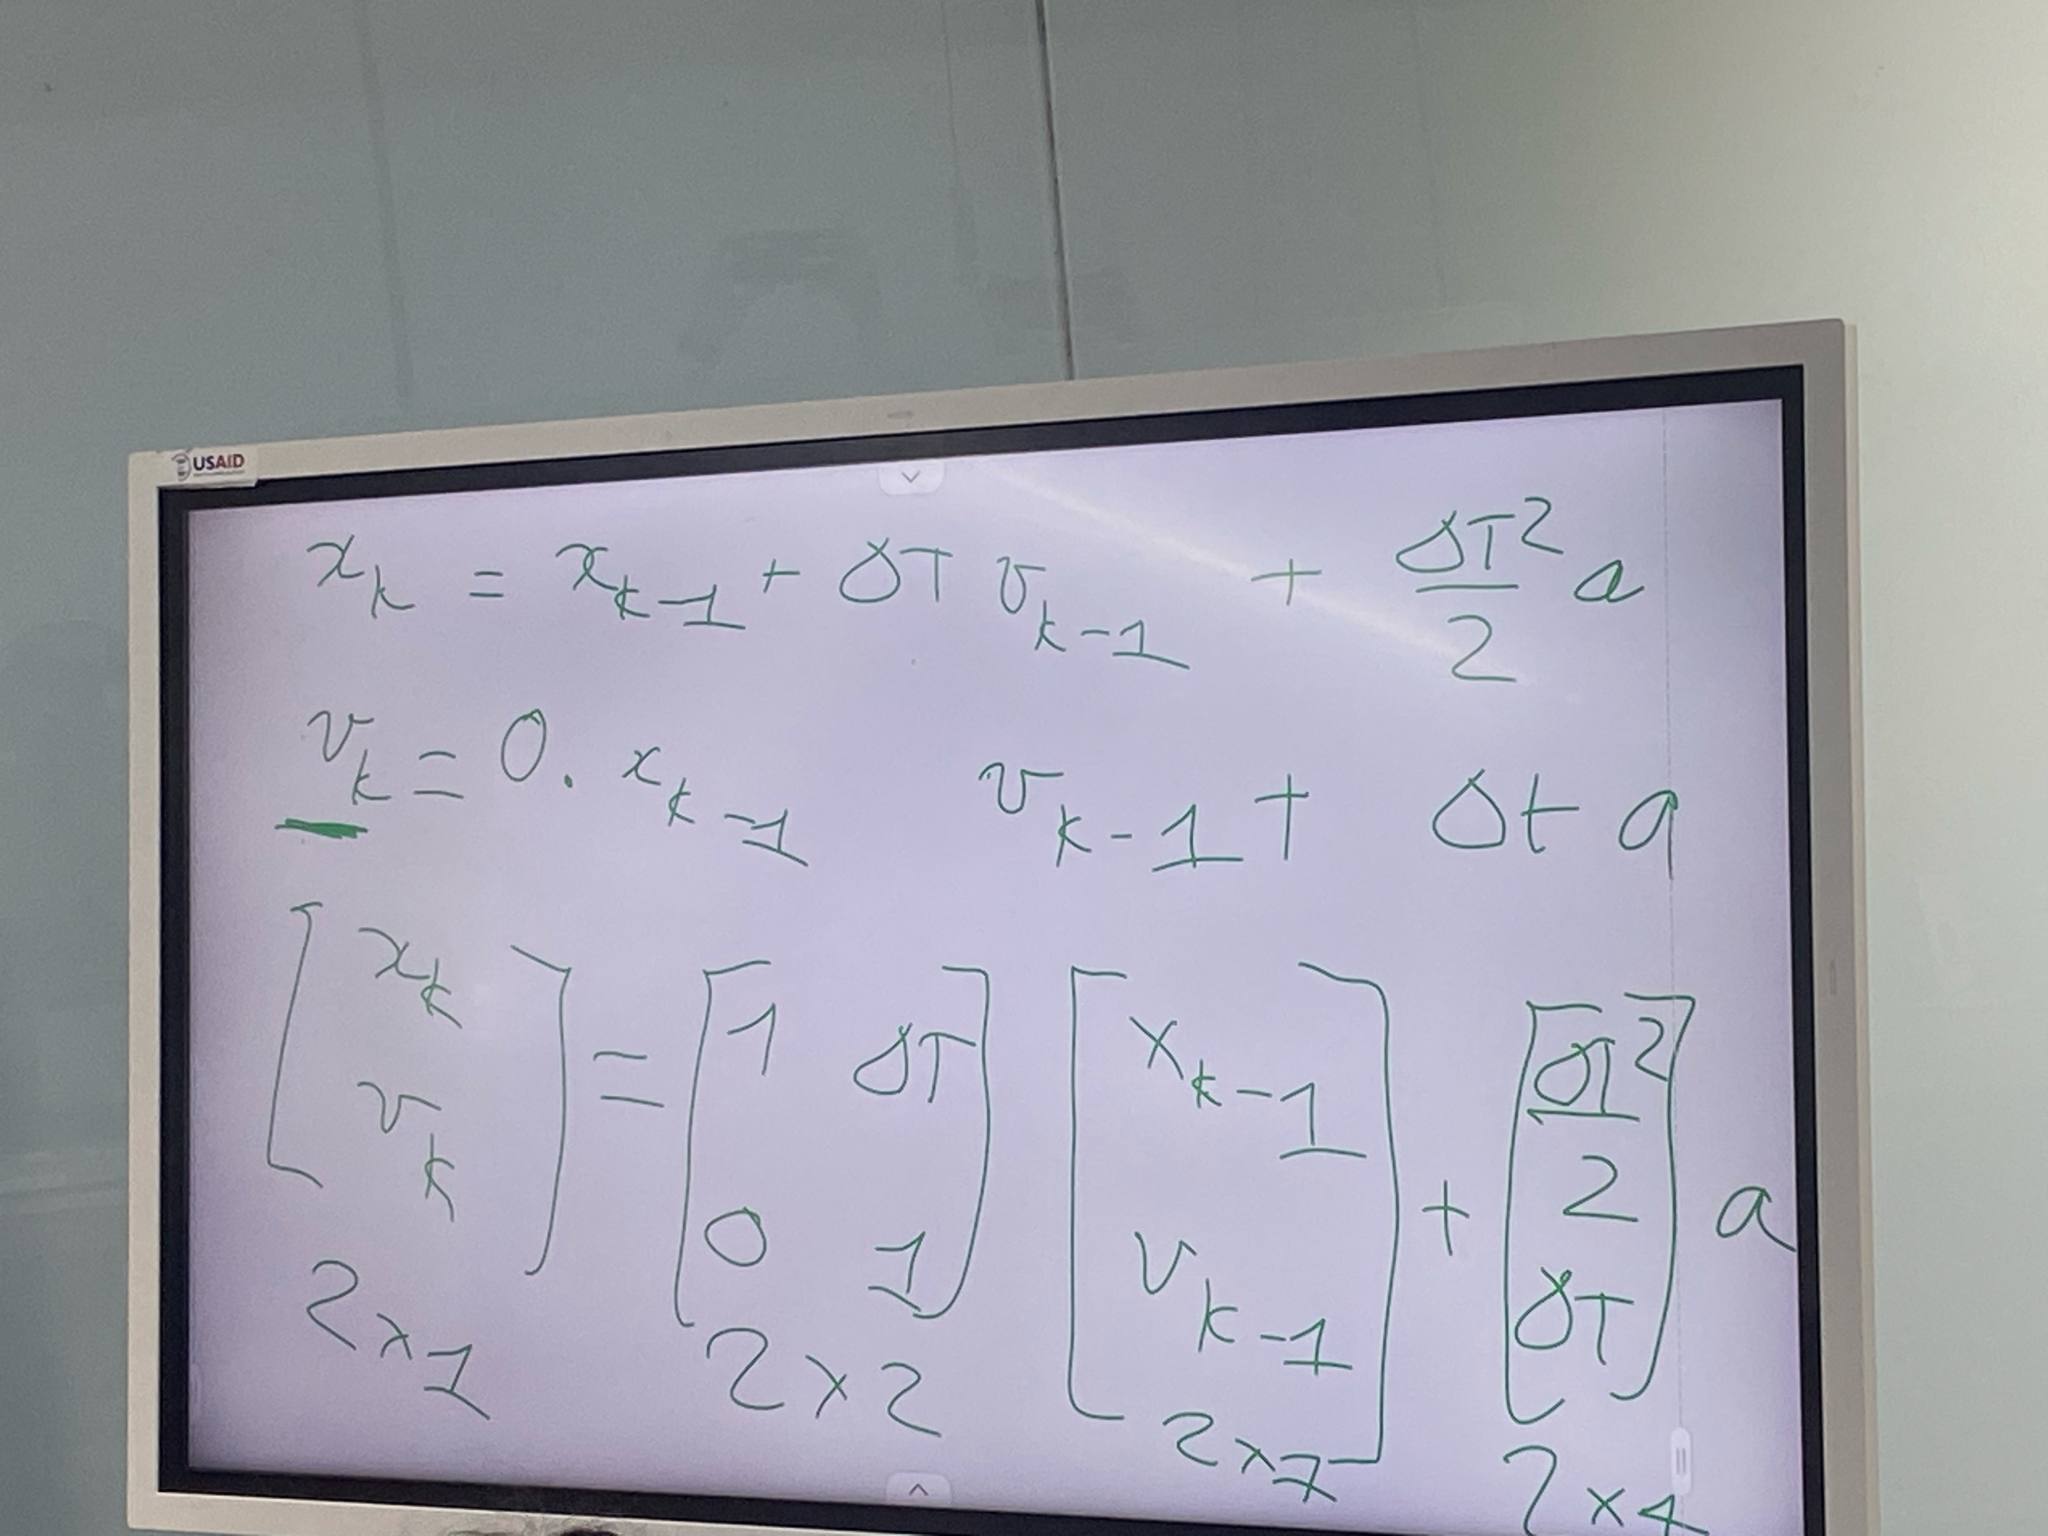 USAID
x_k = x_{k-1} + ΔT v_{k-1} + ΔT²/2 a
v_k = 0. x_{k-1} v_{k-1} + Δt a
[x_k; v_k] = [1 ΔT; 0 1] [x_{k-1}; v_{k-1}] + [ΔT²/2; ΔT] a
2×1 2×2 2×1 2×1